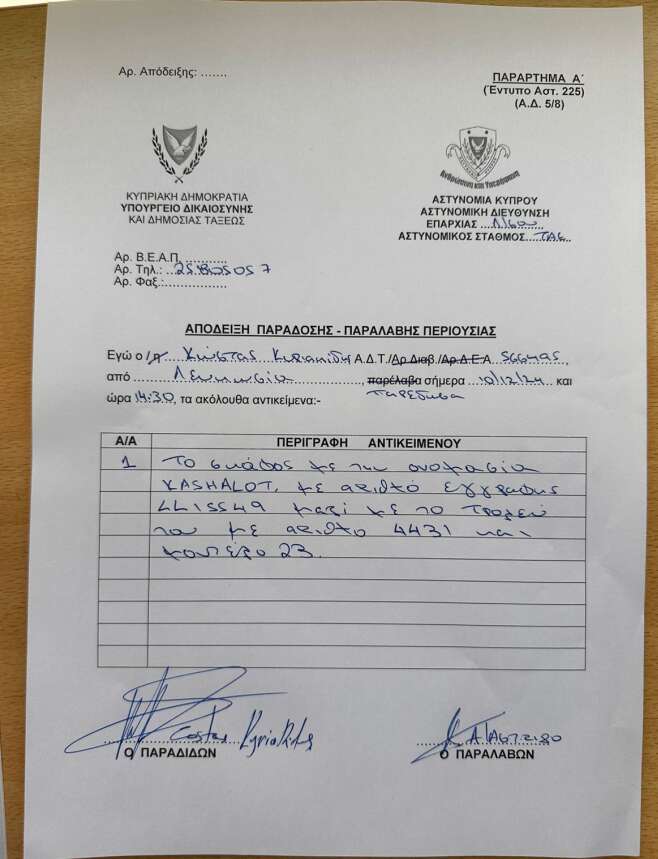 Αρ. Απόδειξης: .......
ΠΑΡΑΡΤΗΜΑ Α΄
(Έντυπο Αστ. 225)
(Α.Δ. 5/8)
ΚΥΠΡΙΑΚΗ ΔΗΜΟΚΡΑΤΙΑ
ΥΠΟΥΡΓΕΙΟ ΔΙΚΑΙΟΣΥΝΗΣ
ΚΑΙ ΔΗΜΟΣΙΑΣ ΤΑΞΕΩΣ
ΑΣΤΥΝΟΜΙΑ ΚΥΠΡΟΥ
ΑΣΤΥΝΟΜΙΚΗ ΔΙΕΥΘΥΝΣΗ
ΕΠΑΡΧΙΑΣ Λ/σού
ΑΣΤΥΝΟΜΙΚΟΣ ΣΤΑΘΜΟΣ ΤΑΕ
Αρ. Β.Ε.Α.Π. ...........
Αρ. Τηλ.: 25805057
Αρ. Φαξ.:...............
ΑΠΟΔΕΙΞΗ ΠΑΡΑΔΟΣΗΣ - ΠΑΡΑΛΑΒΗΣ ΠΕΡΙΟΥΣΙΑΣ
Εγώ ο /η Κώστας Κυριακίδης Α.Δ.Τ./Αρ.Διαβ./Αρ.Δ.Ε.Α.
από Λευκωσία, παρέλαβα σήμερα 10/12/24 και
παρέδωσα
ώρα 14:30, τα ακόλουθα αντικείμενα:-
Α/Α ΠΕΡΙΓΡΑΦΗ ΑΝΤΙΚΕΙΜΕΝΟΥ
1 Το σκάφος με την ονομασία
KASHALOT, με αριθμό εγγραφής
LL15549 μαζί με το τρέιλερ
του με αριθμό 4431 και
κοντέξο 23.
Costas Kyriakides
Ο ΠΑΡΑΔΙΔΩΝ
Ο ΠΑΡΑΛΑΒΩΝ